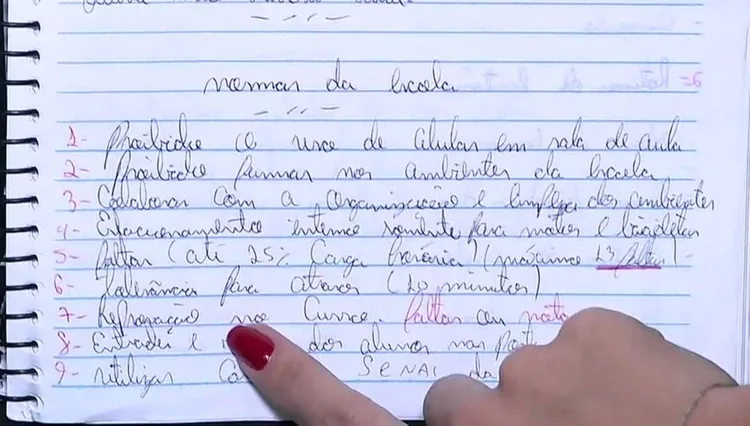 normas da Escola
1- Proibido o uso de celular em sala de aula
2- Proibido fumar nos ambientes da Escola
3- Colaborar com a organização e limpeza dos ambientes
4- Estacionamento interno somente para motos e bicicletas
5- faltas (até 25% Carga horária) (máximo 13 faltas)
6- Tolerância para atrasos (10 minutos)
7- Reprovação no Curso: faltas ou nota
8- dos alunos nas
9- utilizar SENAI da